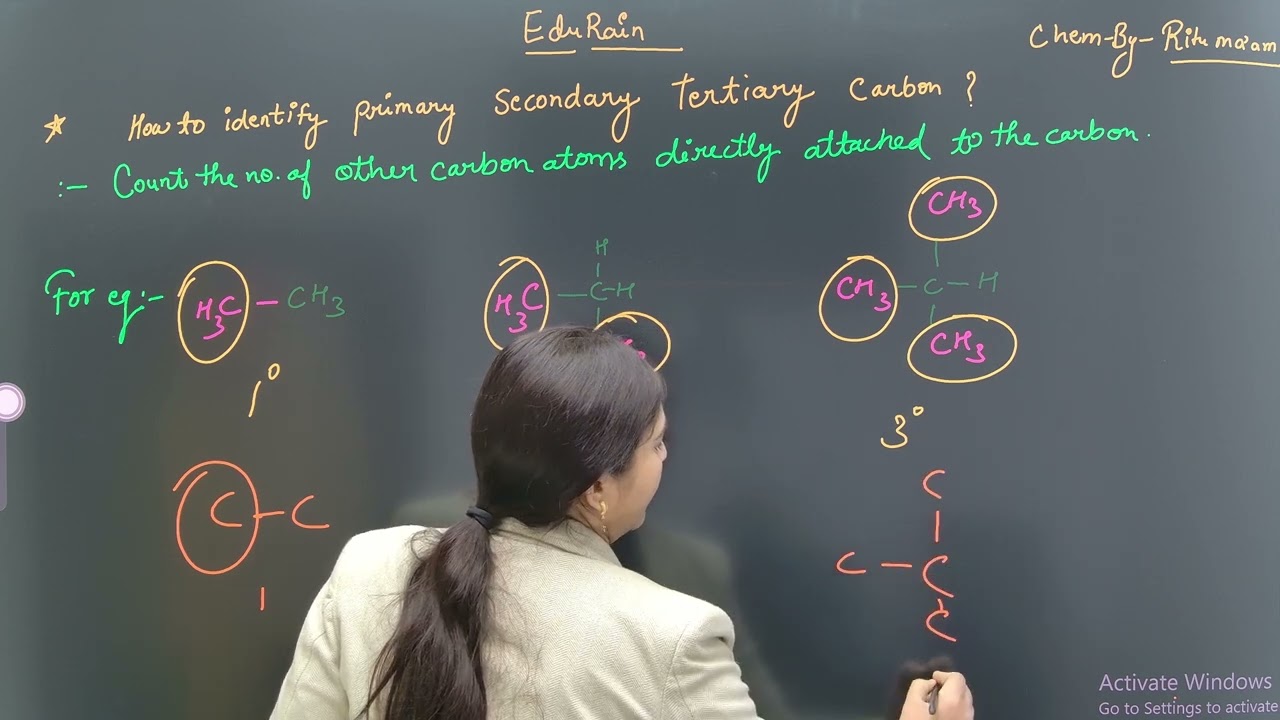 EduRain
Chem-By-Ritu ma'am
* How to identify primary Secondary Tertiary Carbon ?
:- Count the no. of other carbon atoms directly attached to the carbon.
For eg:-
H3C - CH3
1°
H
H3C - C - H
CH3
CH3 - C - H
CH3
3°
C - C
1
C
C - C
C
Activate Windows
Go to Settings to activate